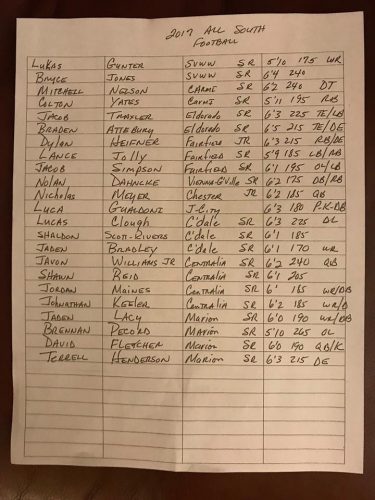 2017 ALL SOUTH
FOOTBALL
LUKAS GUNTER SVWW SR 5'10 175 WR
BRYCE JONES SVWW SR 6'4 240
MITCHELL NELSON CARMI SR 6'2 240 DT
COLTON YATES CARMI SR 5'11 195 RB
JACOB TRAXLER Eldorado SR 6'3 225 TE/LB
BRADEN ATTEBURY Eldorado SR 6'5 215 TE/DE
Dylan HEIFNER Fairfield JR 6'3 215 RB/DE
LANCE Jolly FAIRFIELD SR 5'9 185 LB/RB
JACOB SIMPSON FAIRFIELD SR 6'1 195 OL/LB
NOLAN DAHNCKE VIENNA-GVille SR 6'2 175 DB/RB
Nicholas MEYER CHESTER JR 6'2 185 QB
LUCA GUALDONI J-City 6'3 180 P-K-DB
LUCAS Clough C'dale SR 6'3 225 DL
SHALDON SCOTT-RIVERS C'dale SR 6'1 185
JADEN BRADLEY C'dale SR 6'1 170 WR
JAVON WILLIAMS JR CENTRALIA SR 6'2 240 QB
SHAWN REID Centralia SR 6'1 205
JORDAN MAINES Centralia SR 6' 185 WR/DB
JONATHAN KEELER Centralia SR 6'2 185 WR/D
JADEN LACY Marion SR 6'0 190 WR/DB
BRENNAN PECORD MARION SR 5'10 265 OL
DAVID FLETCHER MARION SR 6'0 190 QB/K
TERRELL HENDERSON MARION SR 6'3 215 DE